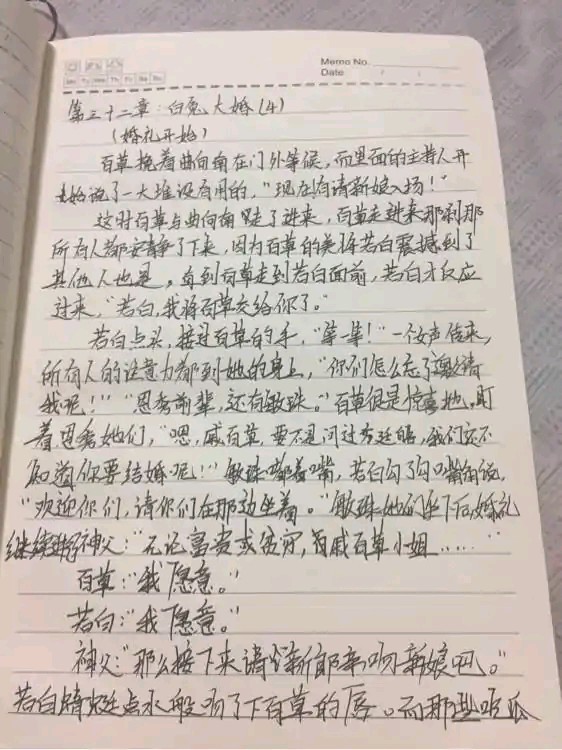 Memo No.
Date / /
Mo Tu We Th Fr Sa Su
第三十二章:白兔大婚(4)
(婚礼开始)
百草挽着曲向南在门外等候,而里面的主持人开
始说了一大堆没有用的,“现在有请新娘入场!”
这时百草与曲向南走了进来,百草走进来那刹那
所有人都安静了下来,因为百草的美将若白震撼到了
其他人也是。直到百草走到若白面前,若白才反应
过来,“若白,我将百草交给你了。”
若白点头,接过百草的手,“等一等!”一个女声传来,
所有人的注意力都到她的身上,“你们怎么忘了邀请
我呢!”“恩秀前辈,还有敏珠。”百草很是惊喜地,盯
着恩秀她们,“嗯,戚百草,要不是问过秀廷皓,我们还不
知道你要结婚呢!”敏珠嘟着嘴,若白勾了勾嘴角说,
“欢迎你们,请你们在那边坐着。”敏珠她们坐下后,婚礼
继续进行神父:“无论富贵或贫穷,有戚百草小姐……”
百草:“我愿意。”
若白:“我愿意。”
神父:“那么接下来请新郎亲吻新娘吧。”
若白蜻蜓点水般吻了下百草的唇。而那些呱